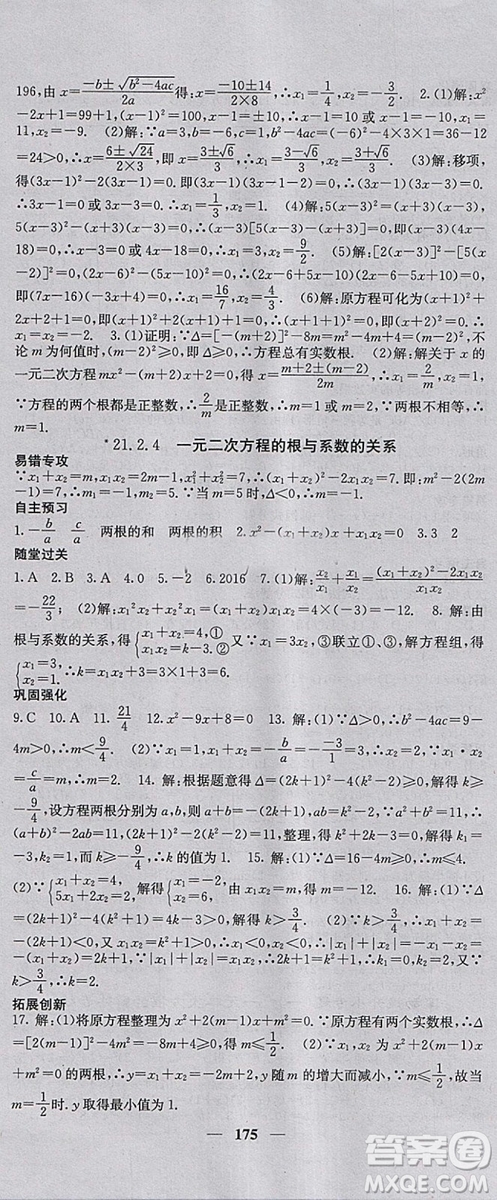 196,由 x=\frac{-b±\sqrt{b²-4ac}}{2a}得:x=\frac{-10±14}{2×8},∴x₁=\frac{1}{4},x₂=-\frac{3}{2}. 2.(1)解:x²
-2x+1=99+1,(x-1)²=100,x-1=±10,∴x-1=10 或 x-1=-10,∴x₁=11,
x₂=-9. (2)解:∵a=3,b=-6,c=1,∴Δ=b²-4ac=(-6)²-4×3×1=36-12
=24>0,∴x=\frac{6±\sqrt{24}}{2×3},即 x=\frac{3±\sqrt{6}}{3},∴x₁=\frac{3-\sqrt{6}}{3},x₂=\frac{3+\sqrt{6}}{3}. (3)解:移项,
得(3x-1)²-(x-1)(3x-1)=0. ∴(3x-1)[(3x-1)-(x-1)]=0,即2x(3x-1)=0.
∴3x-1=0 或 x=0. ∴x₁=\frac{1}{3},x₂=0. (4)解:原方程可化为5(x-3)²=(x+3)(x-3),
5(x-3)²-(x+3)(x-3)=0,∴(x-3)[5(x-3)-(x+3)]=0,即(x-3)(4x-
18)=0,∴x-3=0 或 4x-18=0,∴x₁=3,x₂=\frac{9}{2}. (5)解:[2(x-3)]²-[5(x-
2)]²=0,即(2x-6)²-(5x-10)²=0,∴(2x-6+5x-10)(2x-6-5x+10)=0,
即(7x-16)(-3x+4)=0,∴x₁=\frac{16}{7},x₂=\frac{4}{3}. (6)解:原方程可化为(x+1)²+
2(x+1)+1=0,∴(x+1)²+2(x+1)+1=0,∴[(x+1)+1]²=0,即(x+2)²=0,
∴x₁=x₂=-2. 3.(1)证明:∵Δ=[-(m+2)]²-4×m×2=m²-4m+4=(m-2)²,不
论 m 为何值时,(m-2)²≥0,即 Δ≥0,∴方程总有实数根. (2)解:解关于 x 的
一元二次方程 mx²-(m+2)x+2=0,得 x=\frac{(m+2)±(m-2)}{2m},∴x₁=\frac{2}{m},x₂=1,
∵方程的两个根都是正整数,∴\frac{2}{m}是正整数,∴m=1 或 m=2.
*21.2.4 一元二次方程的根与系数的关系
易错专攻
∵x₁+x₂=m,x₁x₂=2m-1,∴x₁²+x₂²=(x₁+x₂)²-2x₁x₂=7. 即:m²-2(2m
-1)=7. ∴m₁=-1,m₂=5. ∵当 m=5 时,Δ<0,∴m=-1.
自主预习
1.-\frac{b}{a} \frac{c}{a} 两根的和 两根的积 2.x²-(x₁+x₂)x+x₁x₂=0 3.3 2
随堂过关
1.A 2.B 3.A 4.0 5.-2 6.2016 7.(1)解:\frac{x₂}{x₁}+\frac{x₁}{x₂}=\frac{(x₁+x₂)²-2x₁x₂}{x₁x₂}
=-\frac{22}{3};(2)解:x₁²x₂+x₁x₂²=x₁x₂(x₁+x₂)=-\frac{3}{2}×4=-6. 8. 解:由
根与系数的关系,得{x₁+x₂=4,① x₁x₂=k-3.② 又∵x₁=3x₂,③联立①、③,解方程组,得
{x₁=3, x₂=1. ∴k=x₁x₂+3=3×1+3=6.
巩固强化
9.C 10.A 11.\frac{21}{4} 12.x²-9x+8=0 13. 解:(1)∵Δ>0,∴b²-4ac=9-
4m>0,∴m<\frac{9}{4}. (2)∵x₁+x₂=-\frac{b}{a}=-3,x₁=-1,∴x₂=-2,∵x₁·x₂
=\frac{c}{a}=m,∴m=2. 14. 解:根据题意得 Δ=(2k+1)²-4(k²-2)≥0,解得 k≥-
\frac{9}{4},设方程两根分别为 a,b,则 a+b=-(2k+1),ab=k²-2,∵a²+b²=11,∴
(a+b)²-2ab=11,∴(2k+1)²-2(k²-2)=11,整理得 k²+2k-3=0,解得 k₁=
-3,k₂=1,∵k≥-\frac{9}{4},∴k 的值为 1. 15. 解:(1)∵Δ=16-4m≥0,∴m≤4.
(2)∵{x₁+x₂=4, 5x₁+2x₂=2, ∴解得{x₁=-2, x₂=6, ∴m=x₁x₂=-12. 16. 解:(1)∵Δ
=(2k+1)²-4(k²+1)=4k-3>0,∴k>\frac{3}{4}. (2)∵k>\frac{3}{4},∴x₁+x₂=
-(2k+1)<0. 又∵x₁x₂=k²+1>0,∴x₁<0,x₂<0,∴|x₁|+|x₂|=-x₁-x₂=
-(x₁+x₂)=2k+1. ∵|x₁|+|x₂|=x₁x₂,∴2k+1=k²+1,∴k₁=0,k₂=2. 又∵k>
\frac{3}{4},∴k=2.
拓展创新
17. 解:(1)将原方程整理为 x²+2(m-1)x+m²=0. ∵原方程有两个实数根,∴Δ
=[2(m-1)]²-4m²=-8m+4≥0,∴m≤\frac{1}{2}. (2)∵x₁,x₂为 x²+2(m-1)x+m²
=0 的两根,∴y=x₁+x₂=-2m+2,且 m≤\frac{1}{2}. 因而 y 随 m 的增大而减小,故当
m=\frac{1}{2}时,y 取得最小值为 1.
175